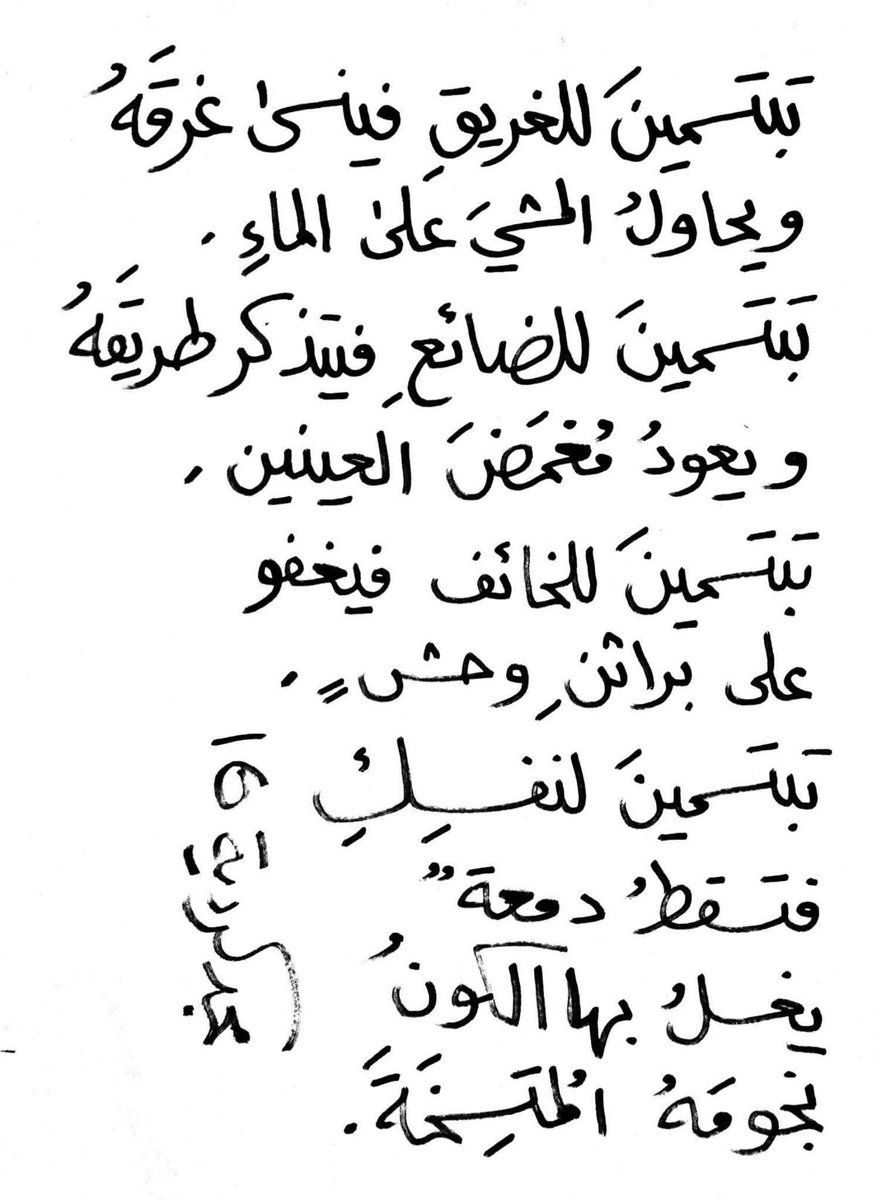 تبتَسمينَ للغريقِ فينسىٰ غرقَهُ
ويحاولُ المشيَ علىٰ الماءِ .
تبتَسمينَ للضائعِ فيتذكر طريقَهُ
ويعودُ مُغمَضَ العينين .
تبتَسمينَ للخائف فيغفو
على براثنِ وحشٍ .
تبتَسمينَ لنفسِكِ
فتسقطُ دمعة"
يغسلُ بها الكونُ
نجومَهُ المُتَسِخَةَ .